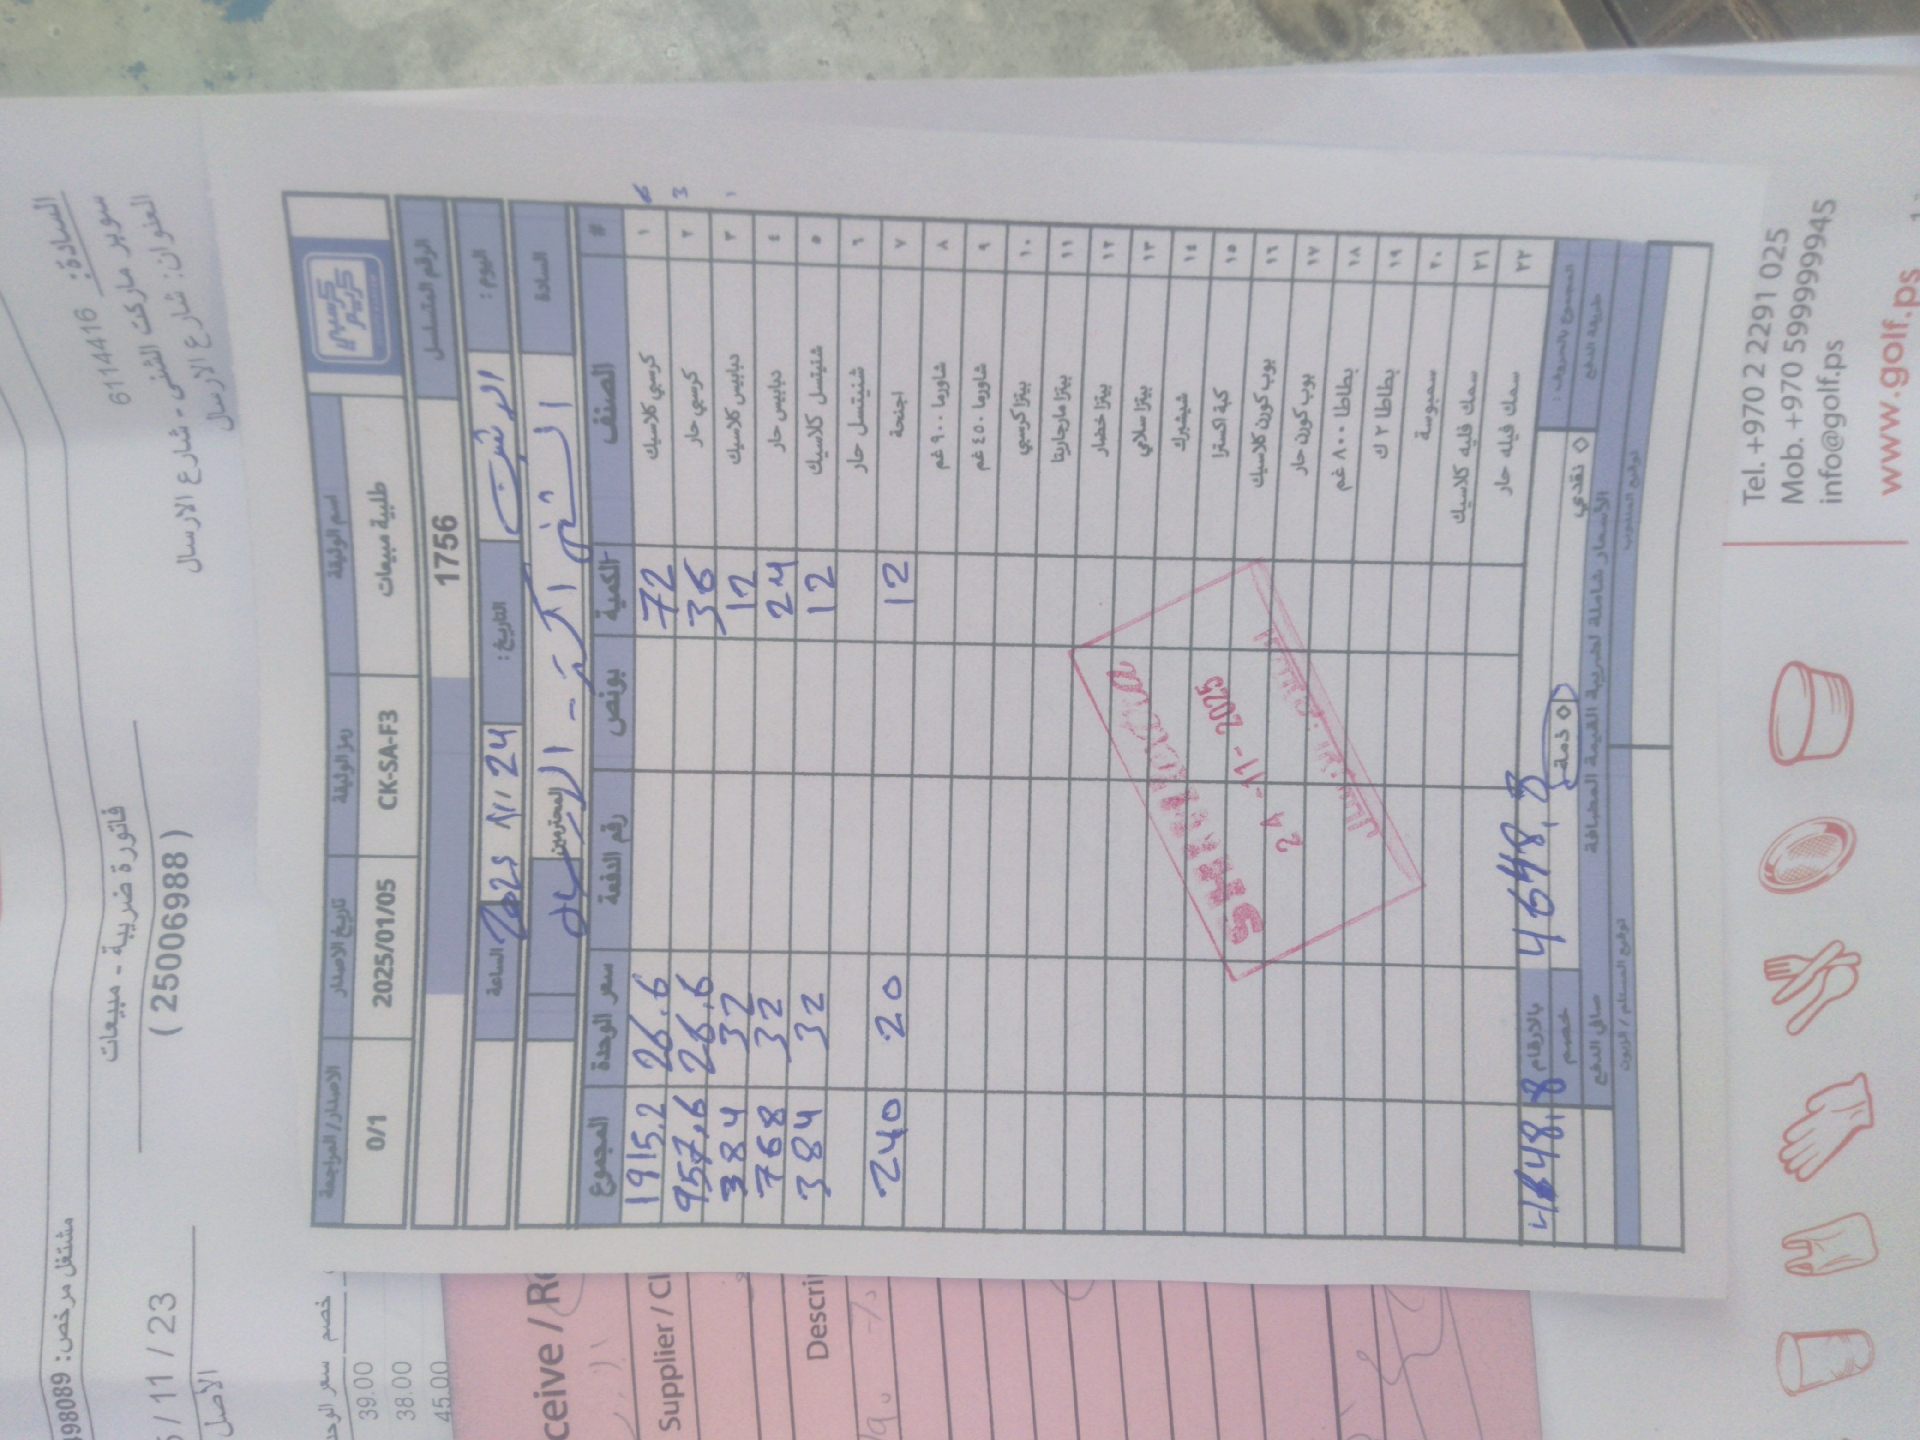 السادة:
6114416
سوبر ماركت الشني - شارع الارسال
العنوان: شارع الارسال
شارع الارسال
فاتورة ضريبة - مبيعات
( 25006988 )
مشتغل مرخص: 98089
/ 11 / 23
الأصل
خصم
39.00
38.00
45.00
كرسبي
كريم
اسم الوثيقة رمز الوثيقة تاريخ الاصدار الاصدار/المراجعة
طلبية مبيعات CK-SA-F3 2025/01/05 0/1
الرقم المتسلسل 1756
اليوم: التاريخ: 24 / 11 / 2025 الساعة
السادة الشني اكسترا - الارسال المحترمين
# الصنف الكمية بونص رقم الدفعة سعر الوحدة المجموع
١ كرسبي كلاسيك 72 26.6 1915.2
٢ كرسبي حار 36 26.6 957.6
٣ دبابيس كلاسيك 12 32 384
٤ دبابيس حار 24 32 768
٥ شنيتسل كلاسيك 12 32 384
٦ شنيتسل حار
٧ اجنحة 12 20 240
٨ شاورما ٩٠٠ غم
٩ شاورما ٤٥٠ غم
١٠ بيتزا كرسبي
١١ بيتزا مارجاريتا
١٢ بيتزا خضار
١٣ بيتزا سلامي
١٤ شيشبرك
١٥ كبة اكسترا
١٦ بوب كورن كلاسيك
١٧ بوب كورن حار
١٨ بطاطا ٨٠٠ غم
١٩ بطاطا ٢ ك
٢٠ سمبوسة
٢١ سمك فليه كلاسيك
٢٢ سمك فيله حار
24 -11- 2025
المجموع بالحروف: 4648.8 بالارقام 4648.8
طريقة الدفع ◇ نقدي ◇ ذمة خصم
الأسعار شاملة لضريبة القيمة المضافة صافي الدفع
توقيع المندوب توقيع المستلم / الزبون
ceive / Re
Supplier / Cl
Descri
Tel. +970 2 2291 025
Mob. +970 599999945
info@golf.ps
www.golf.ps